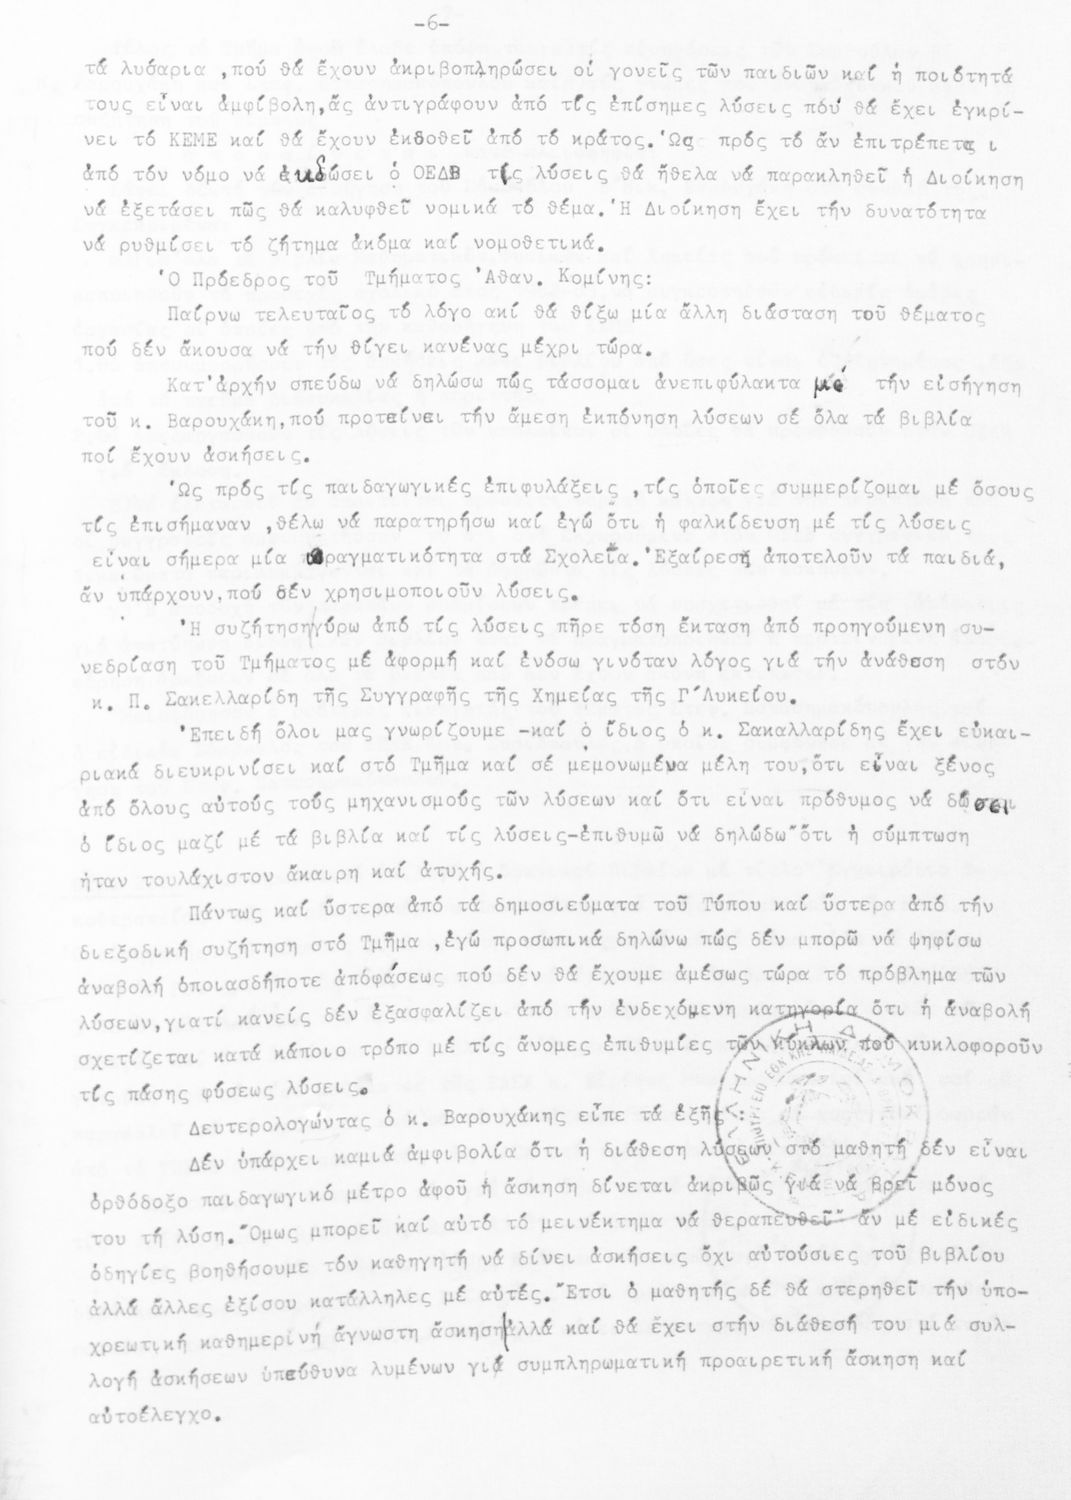 -6-
τά λυσαρια ,πού θά ἔχουν ἀκριβοπληρώσει οἱ γονεῖς τῶν παιδιῶν καί ἡ ποιότητά
τους εἶναι ἀμφίβολη,ἄς ἀντιγράφουν ἀπό τίς ἐπίσημες λύσεις πού θά ἔχει ἐγκρί-
νει τό ΚΕΜΕ καί θά ἔχουν ἐκδοθεῖ ἀπό τό κράτος. Ὡς πρός τό ἄν ἐπιτρέπετα ι
ἀπό τόν νόμο νά ἐκδώσει ὁ ΟΕΔΒ τίς λύσεις θά ἤθελα νά παρακληθεῖ ἡ Διοίκηση
νά ἐξετάσει πῶς θά καλυφθεῖ νομικά τό θέμα. Ἡ Διοίκηση ἔχει τήν δυνατότητα
νά ρυθμίσει τό ζήτημα ἀκόμα καί νομοθετικά.
Ὁ Πρόεδρος τοῦ Τμήματος Ἀθαν. Κομίνης:
Παίρνω τελευταῖος τό λόγο ακί θά θίξω μία ἄλλη διάσταση τοῦ θέματος
πού δέν ἄκουσα νά τήν θίγει κανένας μέχρι τώρα.
Κατ'ἀρχήν σπεύδω νά δηλώσω πώς τάσσομαι ἀνεπιφύλακτα μέ τήν εἰσήγηση
τοῦ κ. Βαρουχάκη,πού προτείνει τήν ἄμεση ἐκπόνηση λύσεων σέ ὅλα τά βιβλία
ποί ἔχουν ἀσκήσεις.
Ὡς πρός τίς παιδαγωγικές ἐπιφυλάξεις ,τίς ὁποῖες συμμερίζομαι μέ ὅσους
τίς ἐπισήμαναν ,θέλω νά παρατηρήσω καί ἐγώ ὅτι ἡ φαλκίδευση μέ τίς λύσεις
εἶναι σήμερα μία πραγματικότητα στά Σχολεῖα. Ἐξαίρεση ἀποτελοῦν τά παιδιά,
ἄν ὑπάρχουν,πού δέν χρησιμοποιοῦν λύσεις.
Ἡ συζήτηση/γύρω ἀπό τίς λύσεις πῆρε τόση ἔκταση ἀπό προηγούμενη συ-
νεδρίαση τοῦ Τμήματος μέ ἀφορμή καί ἐνόσω γινόταν λόγος γιά τήν ἀνάθεση στόν
κ. Π. Σακελλαρίδη τῆς Συγγραφῆς τῆς Χημείας τῆς Γ΄Λυκείου.
Ἐπειδή ὅλοι μας γνωρίζουμε -καί ὁ ἴδιος ὁ κ. Σακαλλαρίδης ἔχει εὐκαι-
ριακά διευκρινίσει καί στό Τμῆμα καί σέ μεμονωμένα μέλη του,ὅτι εἶναι ξένος
ἀπό ὅλους αὐτούς τούς μηχανισμούς τῶν λύσεων καί ὅτι εἶναι πρόθυμος νά δώσει
ὁ ἴδιος μαζί μέ τά βιβλία καί τίς λύσεις-ἐπιθυμῶ νά δηλώδω ὅτι ἡ σύμπτωση
ἦταν τουλάχιστον ἄκαιρη καί ἀτυχής.
Πάντως καί ὕστερα ἀπό τά δημοσιεύματα τοῦ Τύπου καί ὕστερα ἀπό τήν
διεξοδική συζήτηση στό Τμῆμα ,ἐγώ προσωπικά δηλώνω πώς δέν μπορῶ νά ψηφίσω
ἀναβολή ὁποιασδήποτε ἀπόφάσεως πού δέν θά ἔχουμε ἀμέσως τώρα τό πρόβλημα τῶν
λύσεων,γιατί κανείς δέν ἐξασφαλίζει ἀπό τήν ἐνδεχόμενη κατηγορία ὅτι ἡ ἀναβολή
σχετίζεται κατά κάποιο τρόπο μέ τίς ἄνομες ἐπιθυμίες τῶν κύκλων πού κυκλοφοροῦν
τίς πάσης φύσεως λύσεις.
Δευτερολογώντας ὁ κ. Βαρουχάκης εἶπε τά ἑξῆς :
Δέν ὑπάρχει καμιά ἀμφιβολία ὅτι ἡ διάθεση λύσεων στό μαθητή δέν εἶναι
ὀρθόδοξο παιδαγωγικό μέτρο ἀφοῦ ἡ ἄσκηση δίνεται ἀκριβῶς γιά νά βρεῖ μόνος
του τή λύση. Ὅμως μπορεῖ καί αὐτό τό μεινέκτημα νά θεραπευθεῖ ἄν μέ εἰδικές
ὁδηγίες βοηθήσουμε τόν καθηγητή νά δίνει ἀσκήσεις ὄχι αὐτούσιες τοῦ βιβλίου
ἀλλά ἄλλες ἐξίσου κατάλληλες μέ αὐτές. Ἔτσι ὁ μαθητής δέ θά στερηθεῖ τήν ὑπο-
χρεωτική καθημερινή ἄγνωστη ἄσκηση/ἀλλά καί θά ἔχει στήν διάθεσή του μιά συλ-
λογή ἀσκήσεων ὑπεύθυνα λυμένων γιά συμπληρωματική προαιρετική ἄσκηση καί
αὐτοέλεγχο.